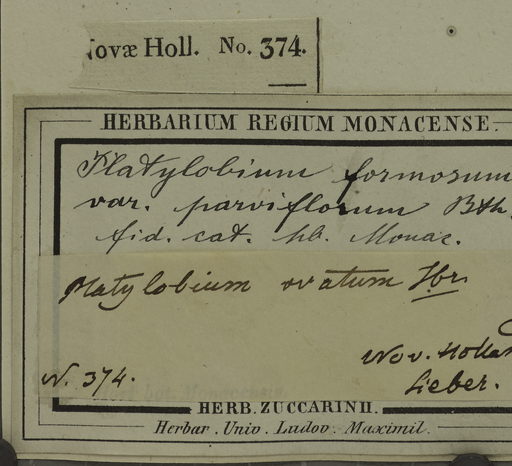 Novæ Holl. No. 374.
HERBARIUM REGIUM MONACENSE.
Platylobium formosum
var. parviflorum Bth.
fid. cat. hb. Monac.
Platylobium ovatum Hbr.
Nov. Hollan
N. 374.
Sieber.
HERB. ZUCCARINII.
Herbar. Univ. Ludov. Maximil.